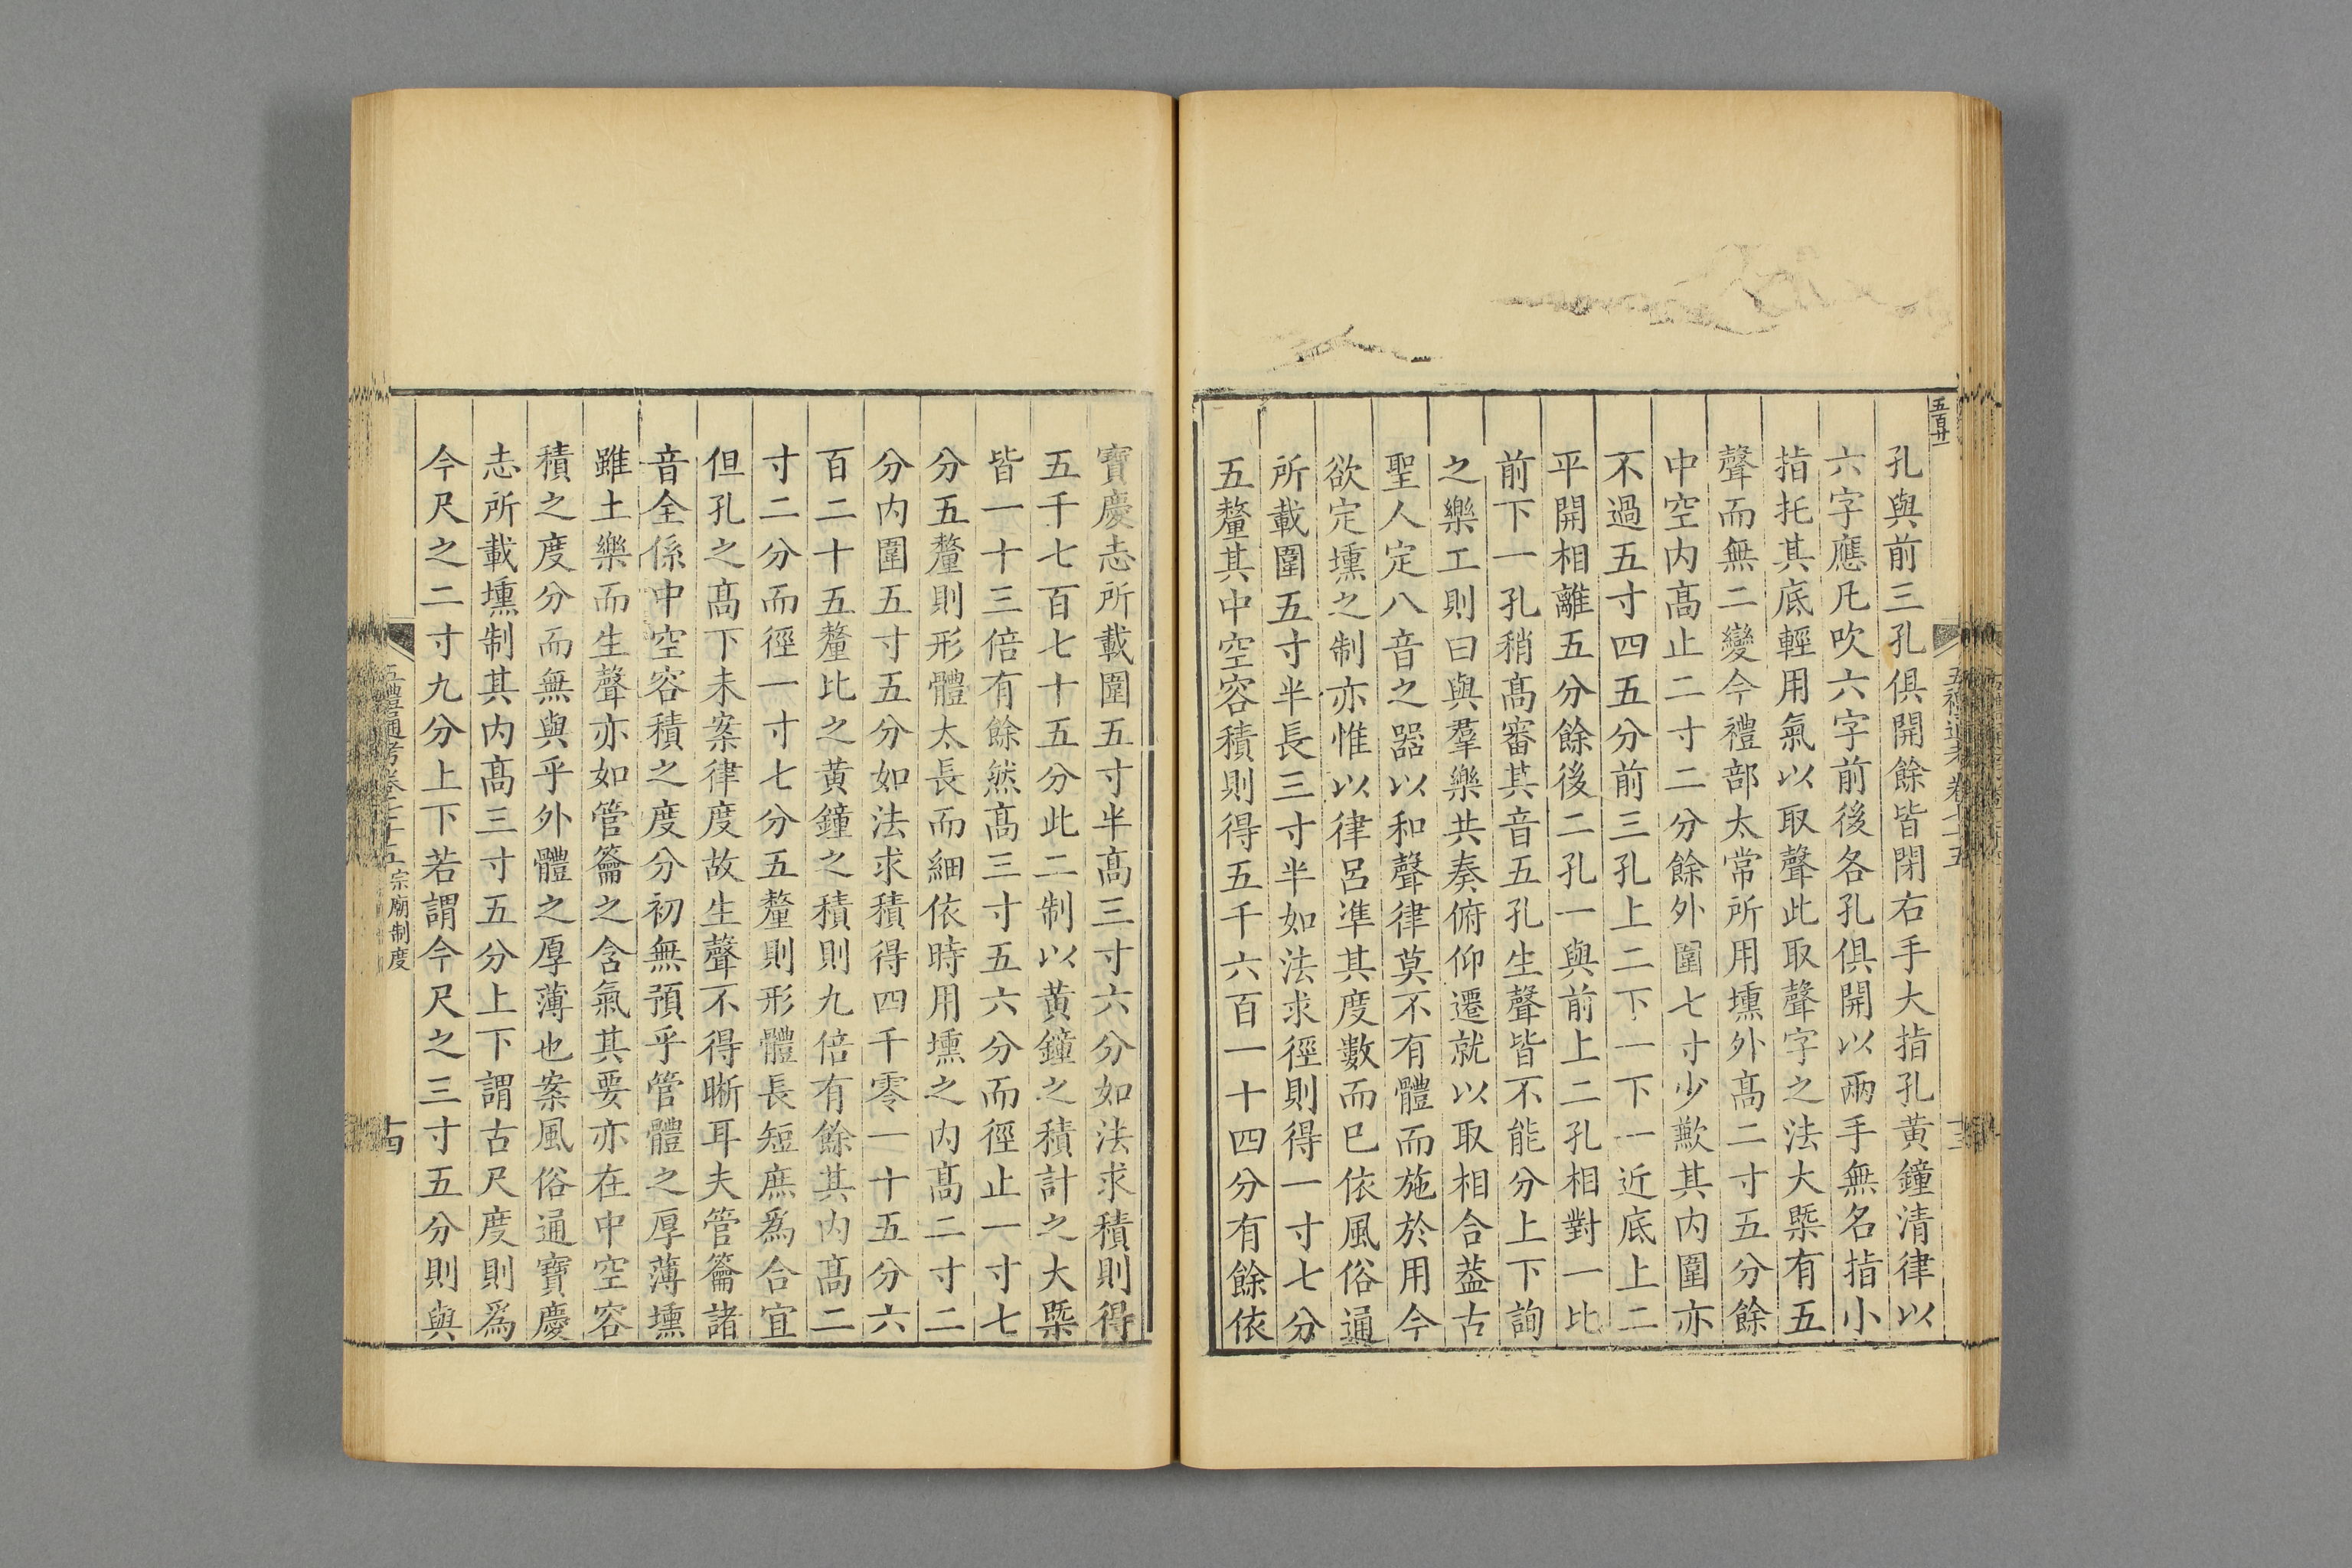 五百廿一
孔與前三孔俱開餘皆閉右手大指孔黃鐘清律以
六字應凡吹六字前後各孔俱開以兩手無名指小
指托其底輕用氣以取聲此取聲字之法大槩有五
聲而無二變今禮部太常所用壎外髙二寸五分餘
中空内髙止二寸二分餘外圍七寸少歉其内圍亦
不過五寸四五分前三孔上二下一下一近底上二
平開相離五分餘後二孔一與前上二孔相對一比
前下一孔稍髙審其音五孔生聲皆不能分上下詢
之樂工則曰與羣樂共奏俯仰遷就以取相合葢古
聖人定八音之器以和聲律莫不有體而施於用今
欲定壎之制亦惟以律呂準其度數而已依風俗通
所載圍五寸半長三寸半如法求徑則得一寸七分
五釐其中空容積則得五千六百一十四分有餘依
寶慶志所載圍五寸半髙三寸六分如法求積則得
五千七百七十五分此二制以黃鐘之積計之大槩
皆一十三倍有餘然髙三寸五六分而徑止一寸七
分五釐則形體太長而細依時用壎之内髙二寸二
分内圍五寸五分如法求積得四千零一十五分六
百二十五釐比之黃鐘之積則九倍有餘其内髙二
寸二分而徑一寸七分五釐則形體長短庶爲合宜
但孔之髙下未案律度故生聲不得晰耳夫管籥諸
音全係中空容積之度分初無預乎管體之厚薄壎
雖土樂而生聲亦如管籥之含氣其要亦在中空容
積之度分而無與乎外體之厚薄也案風俗通寶慶
志所載壎制其内髙三寸五分上下謂古尺度則爲
今尺之二寸九分上下若謂今尺之三寸五分則與
五禮通考卷七十五 宗廟制度
十四